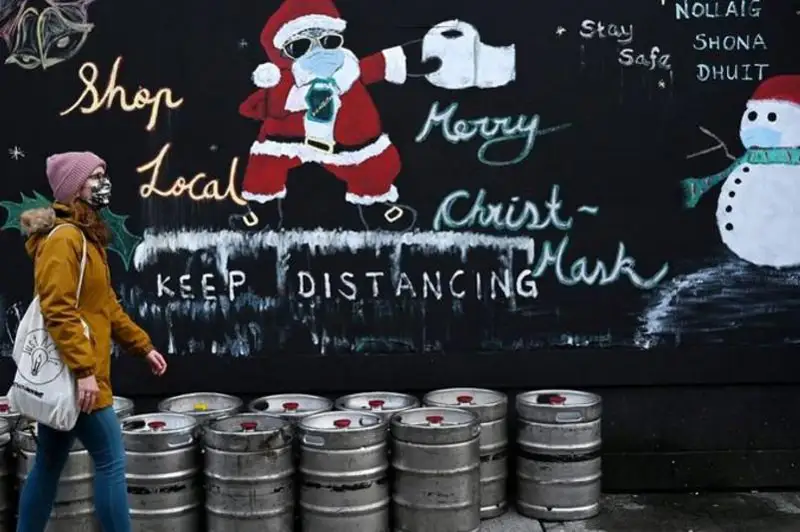 Shop
Local
Merry
Christ-
Mask
KEEP DISTANCING
Stay
Safe
NOLLAIG
SHONA
DHUIT